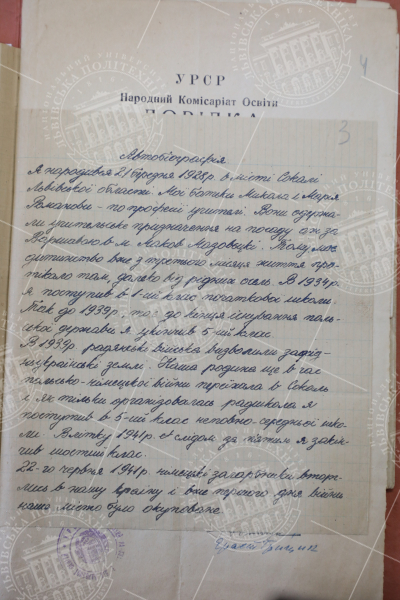 УРСР
Народний Комісаріат Освіти
ДОВІДКА
4
3
Автобіографія
Я народився 21 грудня 1928 р. в місті Сокалі
Львівської области. Мої батьки Микола і Марія
– по професії учителі. Вони одержа-
ли учительське призначення на посаду аж за
Варшавою в м. Маков Мазовецкі. Тому моє
дитинство вже з третього місяця життя про-
тікало там, далеко від рідних осель. В 1934 р.
я поступив в 1-ий клас початкової школи.
Так до 1939 р., до кінця існування поль-
ської держави я укінчив 5-ий клас.
В 1939 р. радянські війська визволили захід-
ньоукраїнські землі. Наша родина ще в час
польсько-німецької війни переїхала в Сокаль
і як тільки організувалась радшкола я
поступив в 5-ий клас неповно-середньої шко-
ли. Влітку 1941 р. слідом за п'ятим я закін-
чив шостий клас.
22-го червня 1941 р. німецькі загарбники вторг-
лись в нашу країну і вже третього дня війни
наше місто було окуповане.
ЛЬВІВСЬКА ПОЛІТЕХНІКА